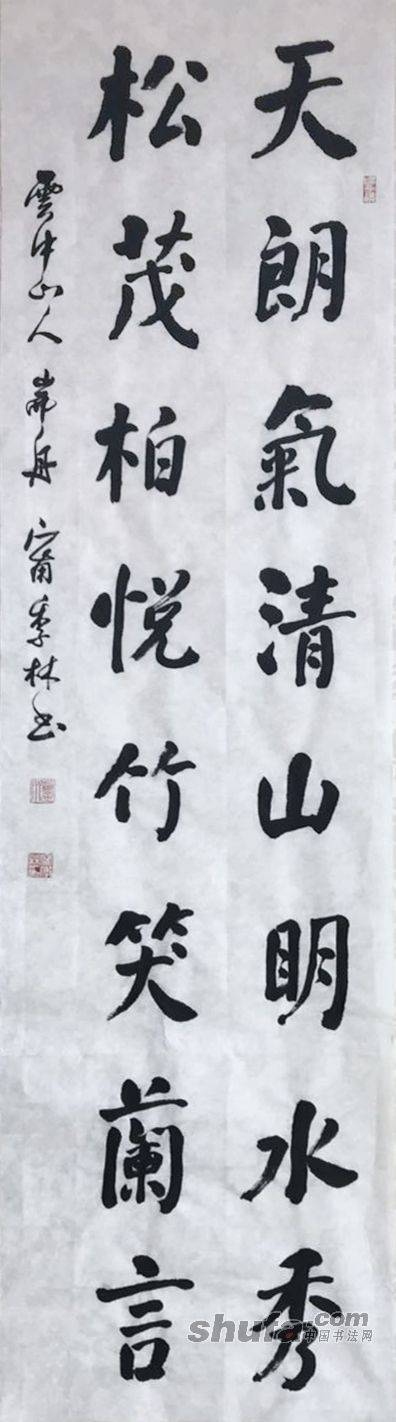 天朗氣清山明水秀
松茂柏悦竹笑蘭言
雲中山人 岢丹 甯季林书
shufa.com
中国书法网